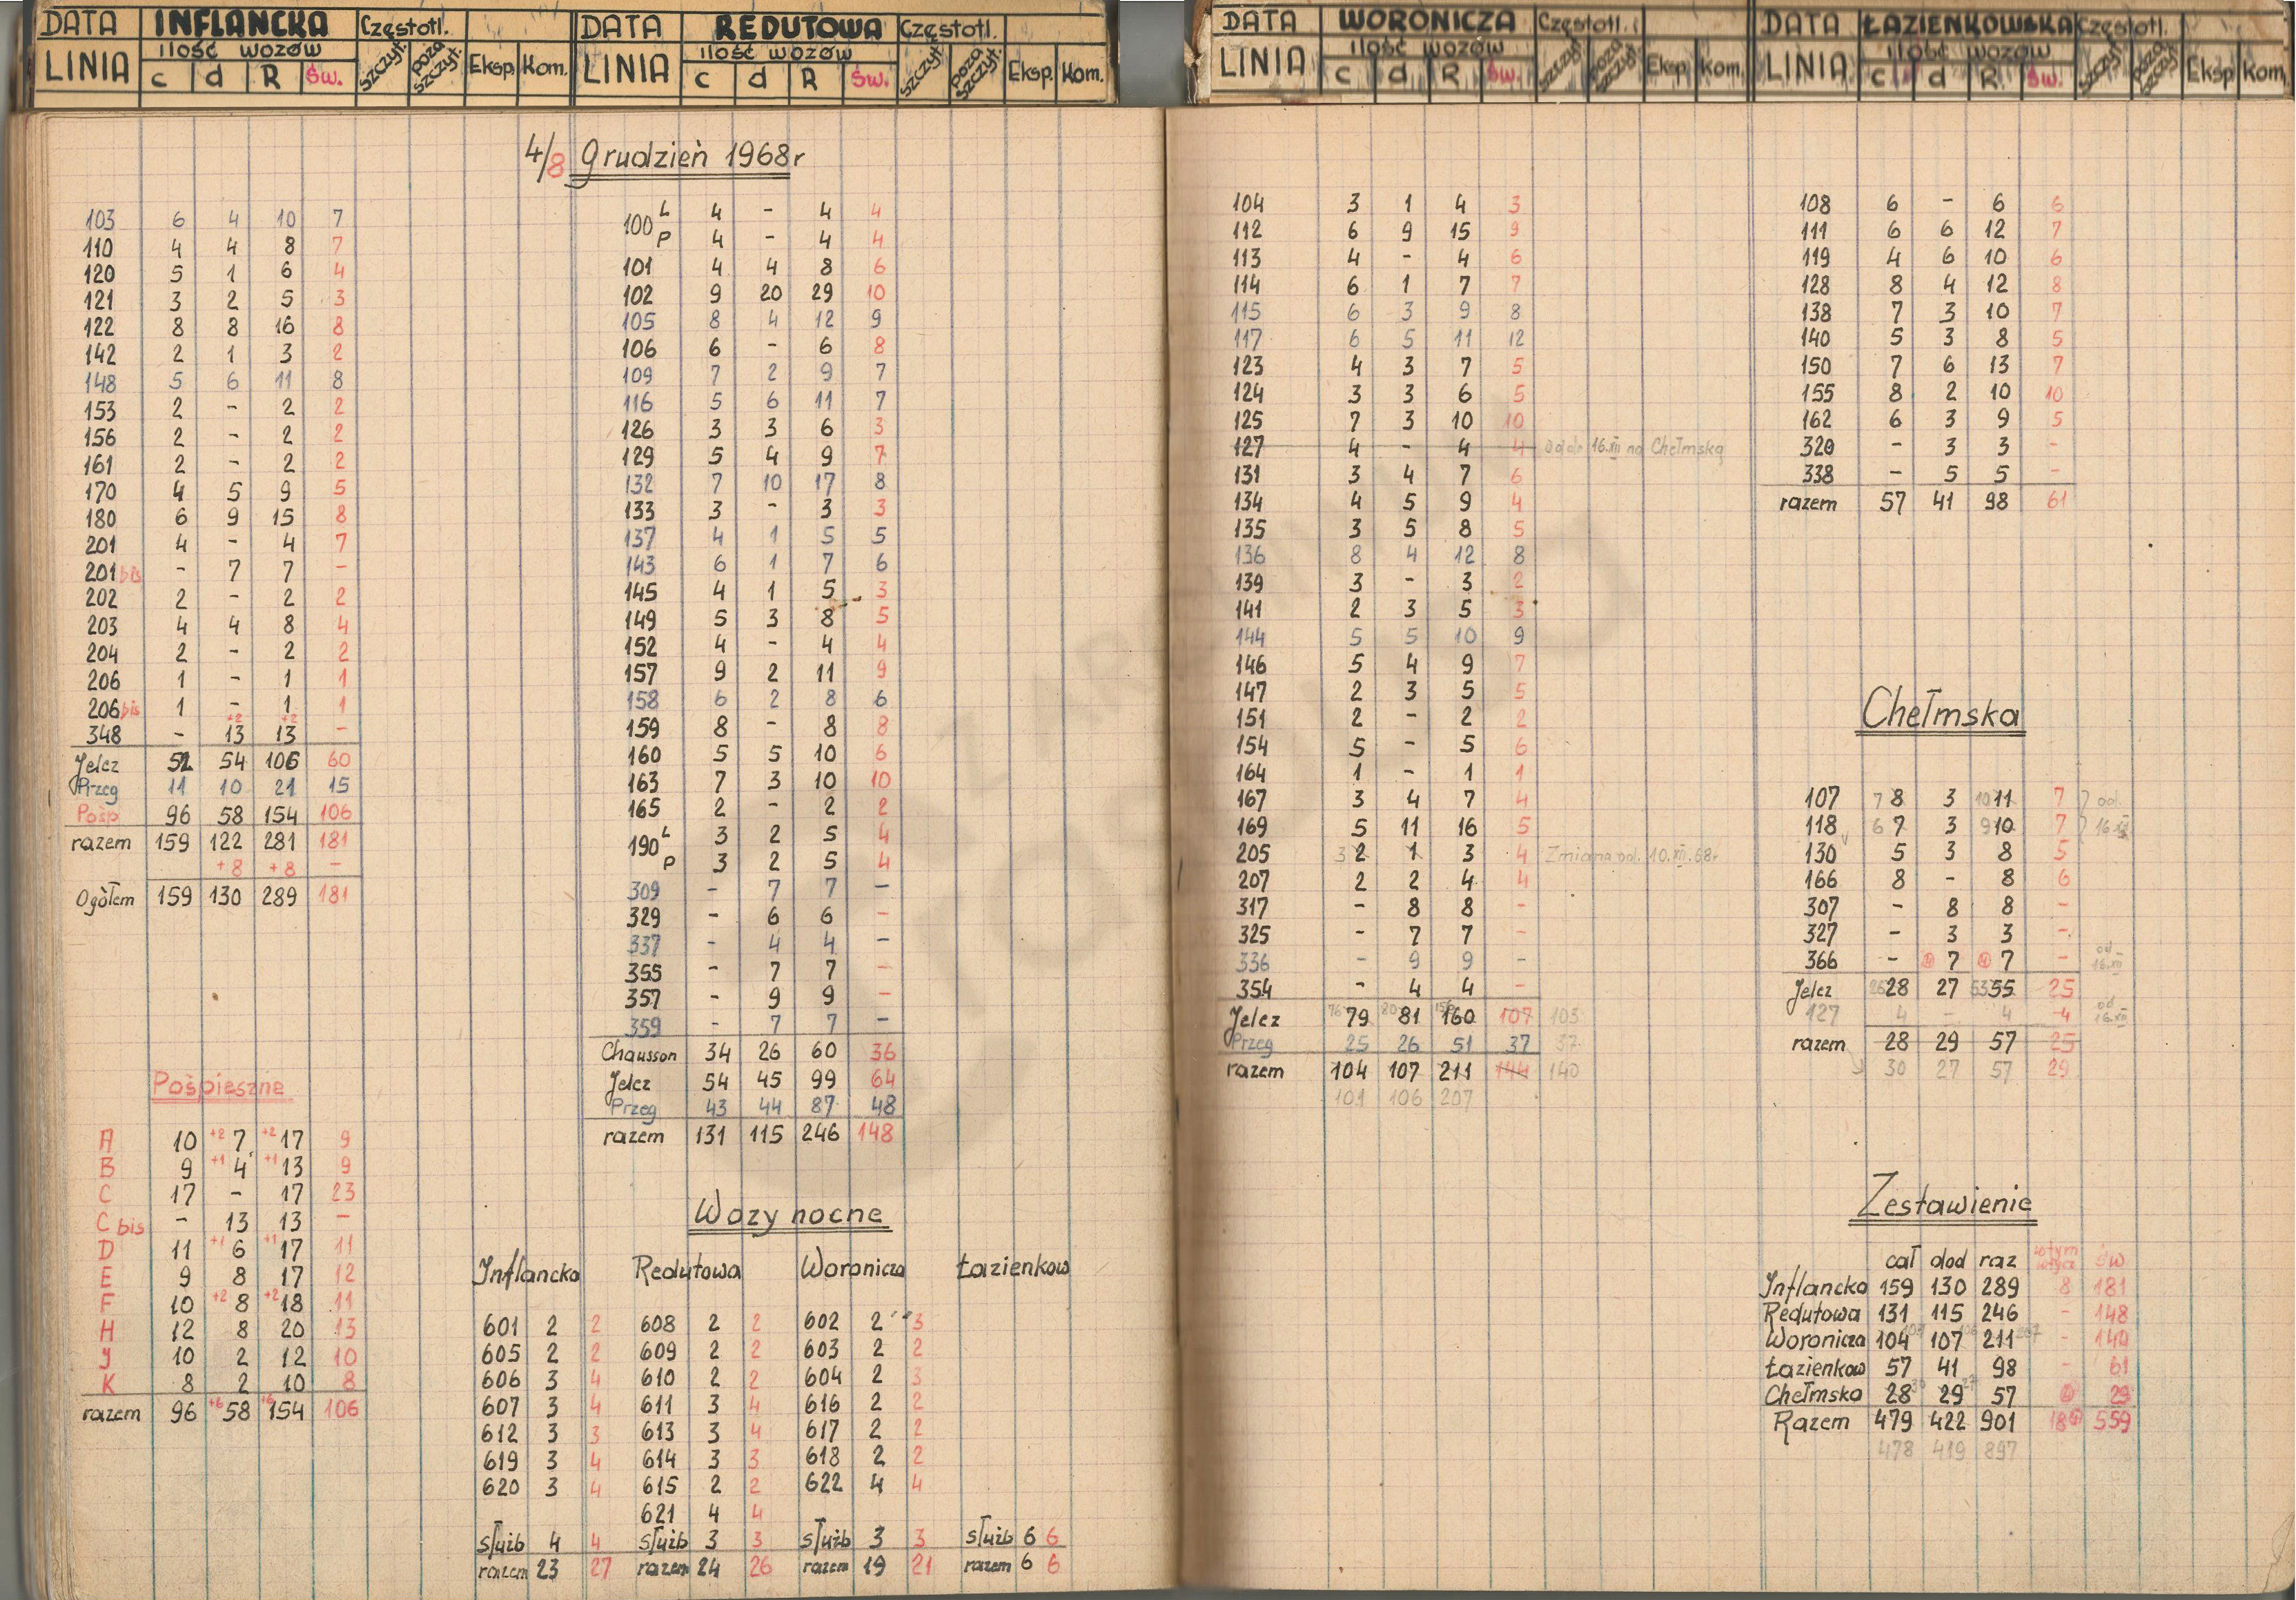 DATA INFLANCKA Częstotl.
LINIA ilość wozów szczyt. poza szczyt. Eksp. Kom.
c d R Św.
DATA REDUTOWA Częstotl.
LINIA ilość wozów szczyt. poza szczyt. Eksp. Kom.
c d R Św.
DATA WORONICZA Częstotl.
LINIA ilość wozów szczyt. poza szczyt. Eksp. Kom.
c d R Św.
DATA ŁAZIENKOWSKA Częstotl.
LINIA ilość wozów szczyt. poza szczyt. Eksp. Kom.
c d R Św.
4/8 Grudzień 1968r
103 6 4 10 7
110 4 4 8 7
120 5 1 6 4
121 3 2 5 3
122 8 8 16 8
142 2 1 3 2
148 5 6 11 8
153 2 - 2 2
156 2 - 2 2
161 2 - 2 2
170 4 5 9 5
180 6 9 15 8
201 4 - 4 7
201 bis - 7 7 -
202 2 - 2 2
203 4 4 8 4
204 2 - 2 2
206 1 - 1 1
206 bis 1 - 1 1
+2 +2
348 - 13 13 -
Jelcz 52 54 106 60
Przeg 11 10 21 15
Pośp 96 58 154 106
razem 159 122 281 181
+8 +8 -
Ogółem 159 130 289 181
Pośpieszne
A 10 +2 7 +2 17 9
B 9 +1 4 +1 13 9
C 17 - 17 23
C bis - 13 13 -
D 11 +1 6 +1 17 11
E 9 8 17 12
F 10 +2 8 +2 18 11
H 12 8 20 13
J 10 2 12 10
K 8 2 10 8
razem 96 +6 58 +6 154 106
100 L 4 - 4 4
P 4 - 4 4
101 4 4 8 6
102 9 20 29 10
105 8 4 12 9
106 6 - 6 8
109 7 2 9 7
116 5 6 11 7
126 3 3 6 3
129 5 4 9 7
132 7 10 17 8
133 3 - 3 3
137 4 1 5 5
143 6 1 7 6
145 4 1 5 3
149 5 3 8 5
152 4 - 4 4
157 9 2 11 9
158 6 2 8 6
159 8 - 8 8
160 5 5 10 6
163 7 3 10 10
165 2 - 2 2
190 L 3 2 5 4
P 3 2 5 4
309 - 7 7 -
329 - 6 6 -
337 - 4 4 -
355 - 7 7 -
357 - 9 9 -
359 - 7 7 -
Chausson 34 26 60 36
Jelcz 54 45 99 64
Przeg 43 44 87 48
razem 131 115 246 148
Wozy nocne
Inflancka Redutowa Woronicza Łazienkow
601 2 2 608 2 2 602 2 3
605 2 2 609 2 2 603 2 2
606 3 4 610 2 2 604 2 3
607 3 4 611 3 4 616 2 2
612 3 3 613 3 4 617 2 2
619 3 4 614 3 3 618 2 2
620 3 4 615 2 2 622 4 4
621 4 4
służb 4 4 służb 3 3 służb 3 3 służb 6 6
razem 23 27 razem 24 26 razem 19 21 razem 6 6
104 3 1 4 3
112 6 9 15 9
113 4 - 4 6
114 6 1 7 7
115 6 3 9 8
117 6 5 11 12
123 4 3 7 5
124 3 3 6 5
125 7 3 10 10
127 4 - 4 4 od dn 16.XII na Chełmską
131 3 4 7 6
134 4 5 9 4
135 3 5 8 5
136 8 4 12 8
139 3 - 3 2
141 2 3 5 3
144 5 5 10 9
146 5 4 9 7
147 2 3 5 5
151 2 - 2 2
154 5 - 5 6
164 1 - 1 1
167 3 4 7 4
169 5 11 16 5
205 3 2 1 3 4 Zmiana od. 10.XII.68r
207 2 2 4 4
317 - 8 8 -
325 - 7 7 -
336 - 9 9 -
354 - 4 4 -
Jelcz 76 79 80 81 156 160 107 103
Przeg 25 26 51 37 37
razem 104 107 211 144 140
101 106 207
108 6 - 6 6
111 6 6 12 7
119 4 6 10 6
128 8 4 12 8
138 7 3 10 7
140 5 3 8 5
150 7 6 13 7
155 8 2 10 10
162 6 3 9 5
320 - 3 3 -
338 - 5 5 -
razem 57 41 98 61
Chełmska
107 7 8 3 10 11 7 od
118 6 7 3 9 10 7 16 XII
130 5 3 8 5
166 8 - 8 6
307 - 8 8 -
327 - 3 3 -
366 - 7 7 - od 16.XII
Jelcz 26 28 27 53 55 25
127 4 - 4 4 od 16.XII
razem 28 29 57 25
30 27 57 29
Zestawienie
cał dod raz św
Inflancka 159 130 289 8 181
Redutowa 131 115 246 - 148
Woronicza 104 107 211 207 - 140
Łazienkow 57 41 98 - 61
Chełmska 28 30 29 27 57 29
Razem 479 422 901 559
478 419 897